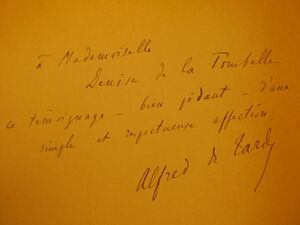 à Mademoiselle
Denise de la Tombelle
ce témoignage – bien pédant – d'une
simple et respectueuse affection
Alfred de Tarde